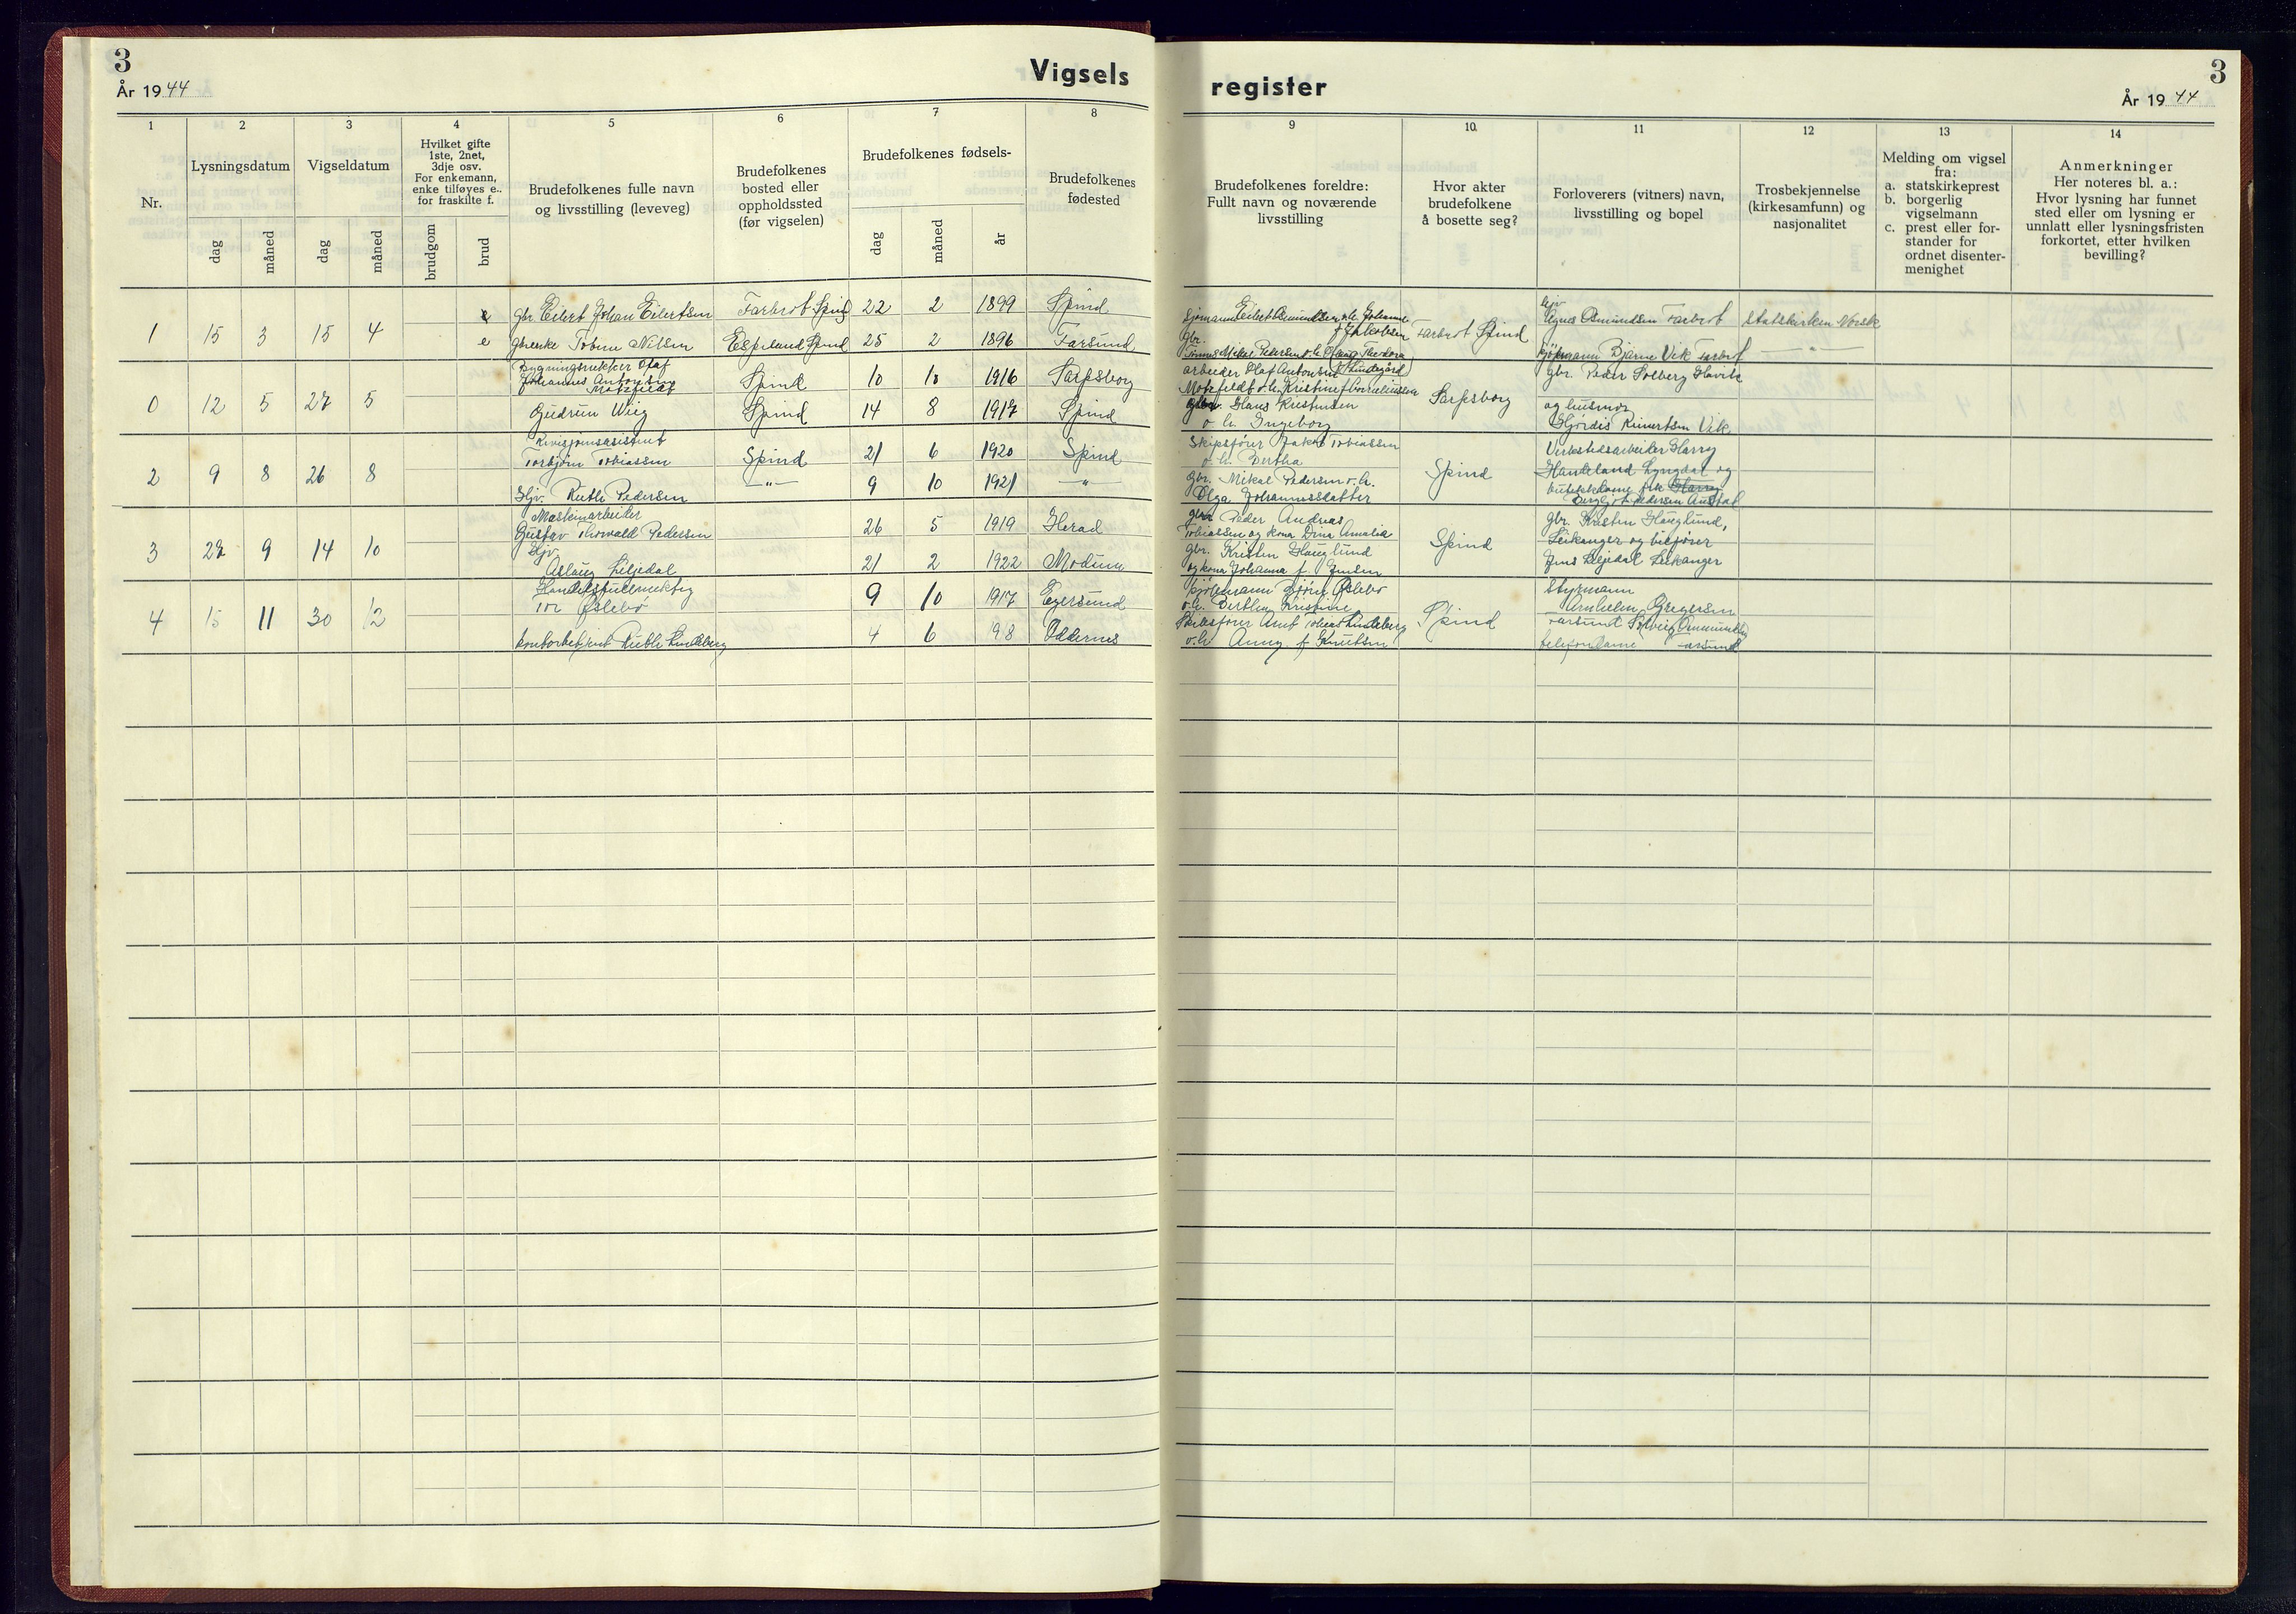 3
År 1944
Vigsels
register
År 1944
3
1
2
3
4
5
6
7
8
9
10.
11
12
13
14
Nr.
Lysningsdatum
dag
måned
Vigseldatum
dag
måned
Hvilket gifte
1ste, 2net,
3dje osv.
For enkemann,
enke tilføyes e..
for fraskilte f.
brudgom
brud
Brudefolkenes fulle navn
og livsstilling (leveveg)
Brudefolkenes
bosted eller
oppholdssted
(før vigselen)
Brudefolkenes fødsels-
dag
måned
år
Brudefolkenes
fødested
Brudefolkenes foreldre:
Fullt navn og noværende
livsstilling
Hvor akter
brudefolkene
å bosette seg?
Forloverers (vitners) navn,
livsstilling og bopel
Trosbekjennelse
(kirkesamfunn) og
nasjonalitet
Melding om vigsel
fra:
a. statskirkeprest
b. borgerlig
vigselmann
c. prest eller for-
stander for
ordnet disenter-
menighet
Anmerkninger
Her noteres bl. a.:
Hvor lysning har funnet
sted eller om lysning er
unnlatt eller lysningsfristen
forkortet, etter hvilken
bevilling?
1 15 3 15 4
e gbr. Eilert Johan Eilertsen Farbrot Spind 22 2 1899 Spind
e gbr enke Tobine Nilsen Espeland Spind 25 2 1896 Farsund
Sjömann Eilert Osmundsen o.h. Johanne
f. Jakobsen
gbr.
Tønnes Mikal Pedersen o.h. Theodora
Farbrot Spind
Agnes Osmundsen Farbrot
Bjarne Vik Farbrot
Statskirken Norsk
— " —
0 12 5 27 5
Bygningssnekker Olaf
Johannes Antonsen
Motzfeldt Spind 10 10 1916 Sarpsborg
Gudrun Wiig Spind 14 8 1917 Spind
arbeider Olaf Antonsen
Motzfeldt o.h. Kristine f. Corneliussen
gbr. Hans Kristensen
o. h. Ingeborg
Sarpsborg
gbr. Peder Solberg Havik
og husmor
Hjördis Reinertsen Vik
2 9 8 26 8
Revisjonsassistent
Torbjörn Tobiassen Spind 21 6 1920 Spind
Hjv. Ruth Pedersen — " — 9 10 1921 — " —
Skipsförer Jakob Tobiassen
o. h. Bertha
gbr. Mikal Pedersen o. h.
Olga Johannesdatter
Spind
Verkstedsarbeider Harry
Handeland Lyngdal og
butikkdame frk Harry
Bergljot Pedersen
3 27 9 14 10
Maskinarbeider
Gustav Thorvald Pedersen 26 5 1919 Herad
Hjv.
Aslaug Liljedal 21 2 1922 Modum
gbr Peder Andreas
Tobiassen og kona Dina Amalia
gbr. Kristen Hauglund
og kona Johanna f. Jensen
Spind
gbr. Kristen Hauglund,
Leikanger og bilförer
Jens Liljedal Leikanger
4 15 11 30 12
Handelsfullmektig
Tor Öslebö 9 10 1917 Egersund
kontorbetjent Ruth Lindeberg 4 6 98 Oddernes
Kjöpmann Björn Öslebö
o.h. Berthe Kristine
Skipsförer Arnt Tobias Lindeberg
o.h. Anny f. Knutsen
Spind
Styrmann
Arnholm Gregersen
Farsund Solveig
telefondame Farsund